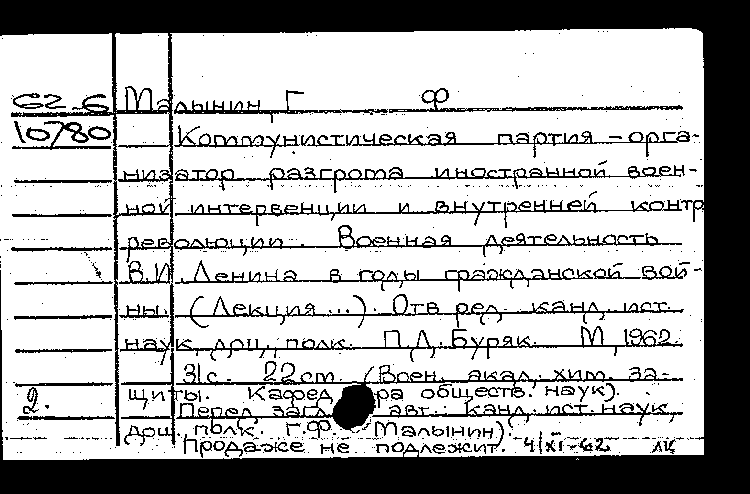 62-6 Малынин, Г Ф
10780 Коммунистическая партия – орга-
низатор разгрома иностранной воен-
ной интервенции и внутренней контр
революции. Военная деятельность
В.И. Ленина в годы гражданской вой-
ны. (Лекция...). Отв. ред. канд. ист.
наук, доц., полк. П.Д. Буряк. М, 1962.
31с. 22cm. (Воен. акад. хим. за-
щиты. Кафедра обществ. наук).
2. Перед загл. авт.: Канд. ист. наук,
доц. полк. Г.Ф. Малынин).
Продаже не подлежит. 4/XI-62